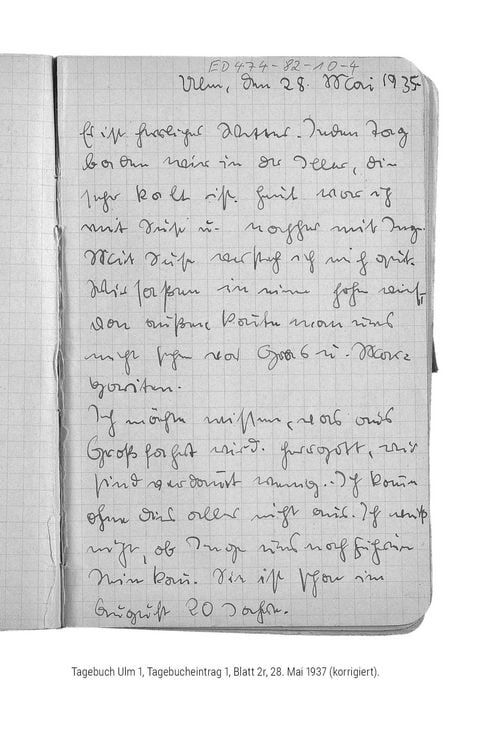 ED474-82-10-4
Ulm, den 28. Mai 1935
Es ist herrliches Wetter. Jeden Tag
baden wir in der Iller, die
sehr kalt ist. Heut war ich
mit Suse u. nachher mit Inge.
Mit Suse versteh ich mich gut.
Wir saßen in einer hohen
von außen konnte man uns
nicht sehen vor Gras u. Mar-
gariten.
Ich möchte wissen, was aus
Großfahrt wird. Herrgott, wir
sind verdammt wenig. Ich komm
ohne dies alles nicht aus. Ich weiß
nicht, ob Inge uns noch führen
kann. Sie ist schon im
August 20 Jahre.
Tagebuch Ulm 1, Tagebucheintrag 1, Blatt 2r, 28. Mai 1937 (korrigiert).